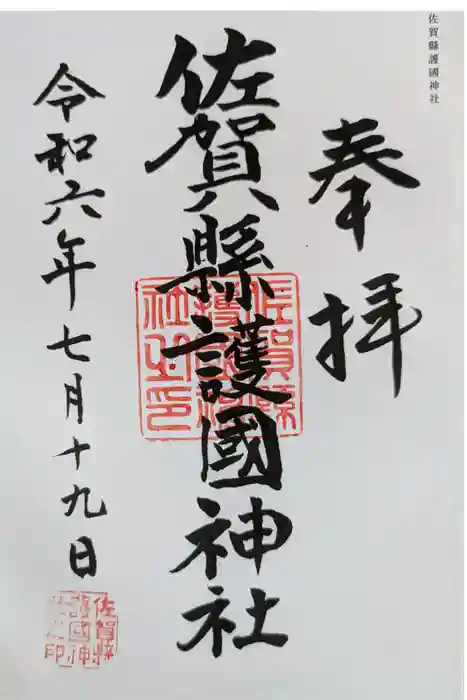 佐賀縣護國神社
奉拝
佐賀縣護國神社
令和六年七月十九日
佐賀縣護國神社之印
佐賀縣護國神社之印